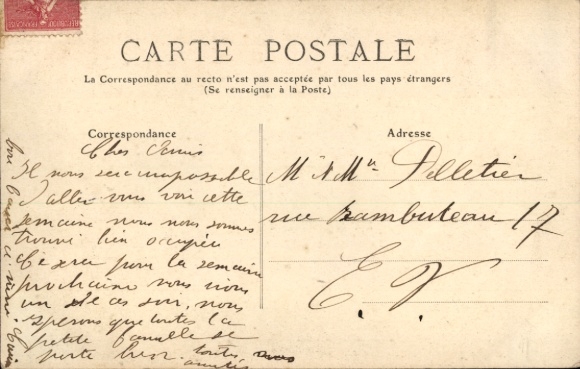 CARTE POSTALE
La Correspondance au recto n'est pas acceptée par tous les pays étrangers
(Se renseigner à la Poste)
Correspondance
Chers Amis
Il nous sera impossible
d'aller vous voir cette
semaine nous nous sommes
trouvé bien occupés
Ce sera pour la semaine
prochaine nous nous
un de ces soir, nous
esperons que toutes la
petite famille se
porte bien. toutes nos
amitiés
Adresse
Mr & Mme Pelletier
rue Rambuteau 17
E. V.